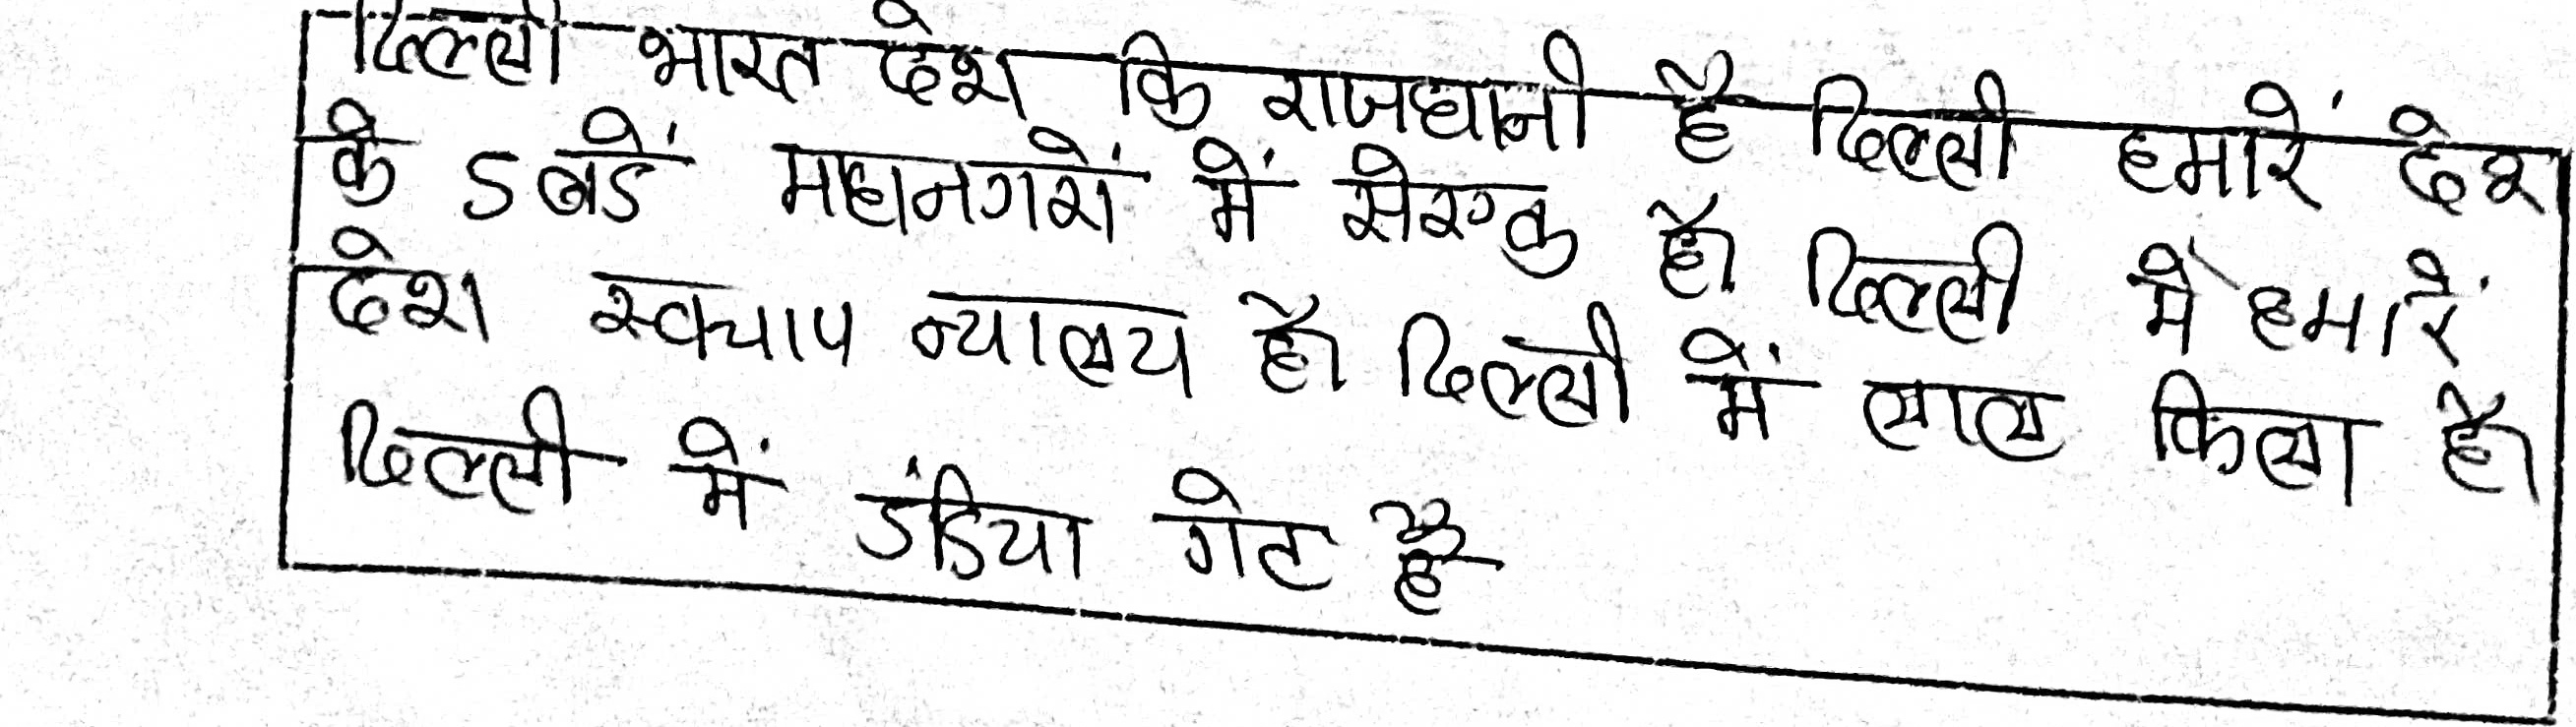 दिल्ली भारत देश कि राजधानी है दिल्ली हमारें देश
के 5 बडें माहानगरों में से एक है। दिल्ली में हमारें
देश स्वचाप न्यालय है। दिल्ली में लाल किला है।
दिल्ली में इंडिया गेट है